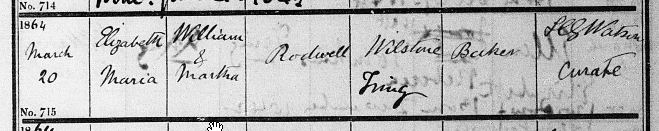 No. 714
1864
March
20
Elizabeth
Maria
William
&
Martha
Rodwell
Wilstone
Tring
Baker
Watson
Curate
No. 715